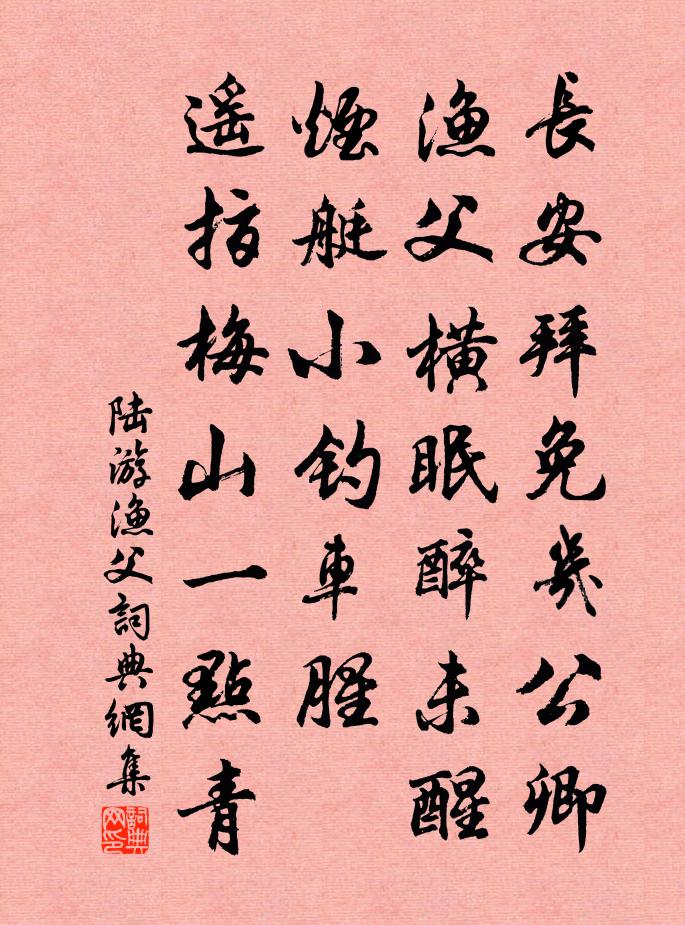 長安拜免幾公卿
漁父橫眠醉未醒
煙艇小釣車腥
遙指梅山一點青
陆游漁父詞典網集
詞典网印